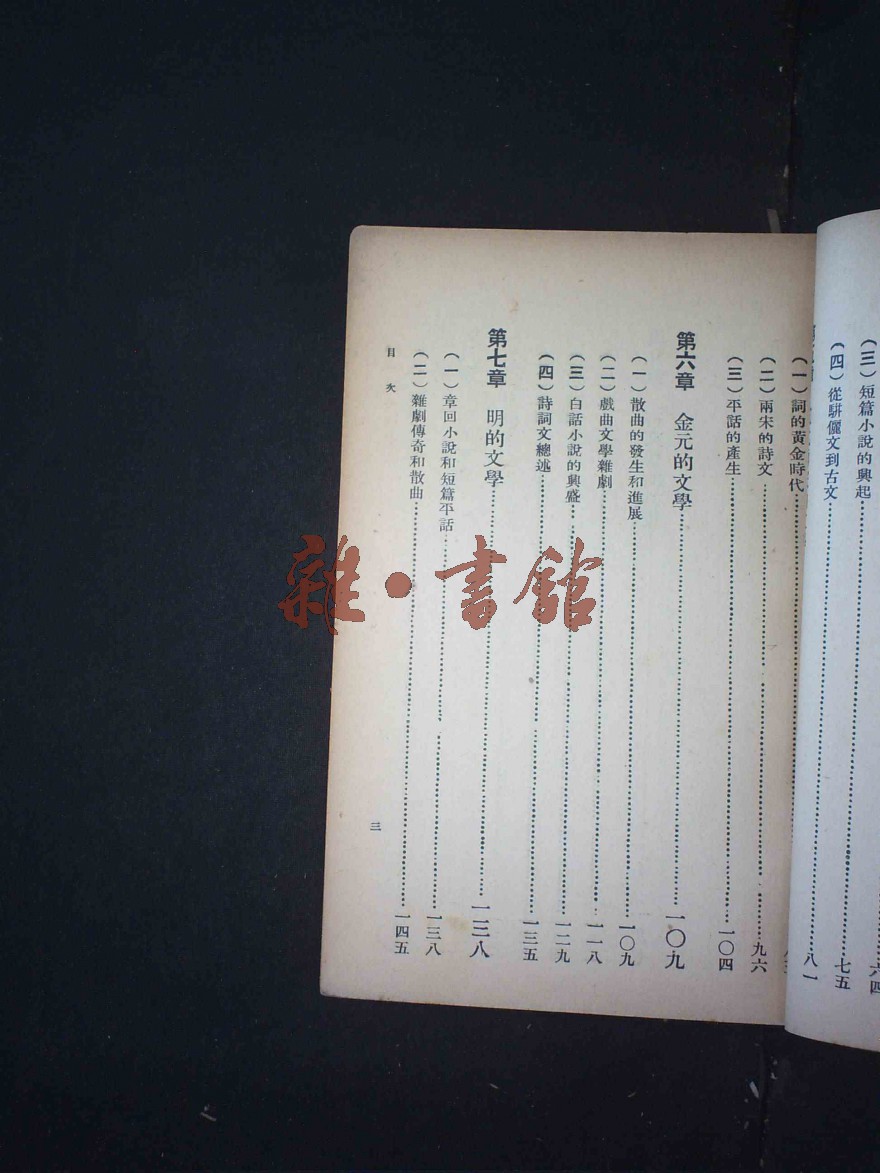 （三）短篇小說的興起
（四）從駢儷文到古文……七五
八一
（一）詞的黃金時代
（二）兩宋的詩文……九六
（三）平話的產生……一〇四
第六章　金元的文學……一〇九
（一）散曲的發生和進展……一〇九
（二）戲曲文學雜劇……一一八
（三）白話小說的興盛……一二九
（四）詩詞文總述……一三五
第七章　明的文學……一三八
（一）章回小說和短篇平話……一三八
（二）雜劇傳奇和散曲……一四五
目次
三
雜·書館